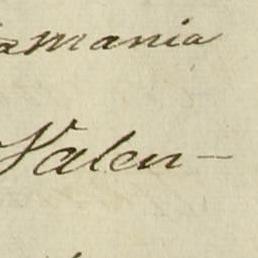 amania
Valen-